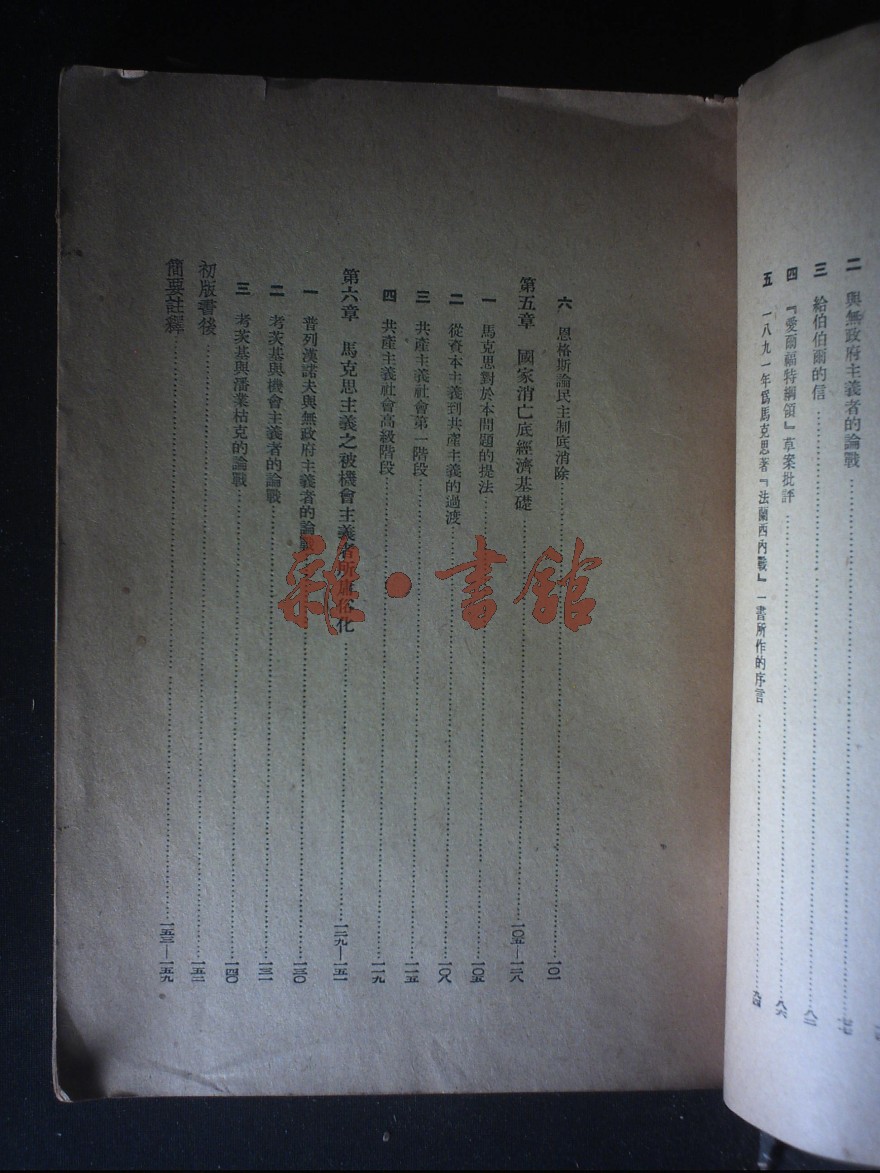 二 與無政府主義者的論戰……七七
三 給伯伯爾的信……八二
四 『愛爾福特綱領』草案批評……八六
五 一八九一年爲馬克思著『法蘭西內戰』一書所作的序言……九四
六 恩格斯論民主制底消除……一〇一
第五章 國家消亡底經濟基礎……一〇五—一二八
一 馬克思對於本問題的提法……一〇五
二 從資本主義到共產主義的過渡……一〇八
三 共產主義社會第一階段……一一五
四 共產主義社會高級階段……一一九
第六章 馬克思主義之被機會主義者所庸俗化……一二九—一五一
一 普列漢諾夫與無政府主義者的論戰……一三〇
二 考茨基與機會主義者的論戰……一三一
三 考茨基與潘業枯克的論戰……一四〇
初版書後……一五二
簡要註釋……一五三—一五九
雜·書館